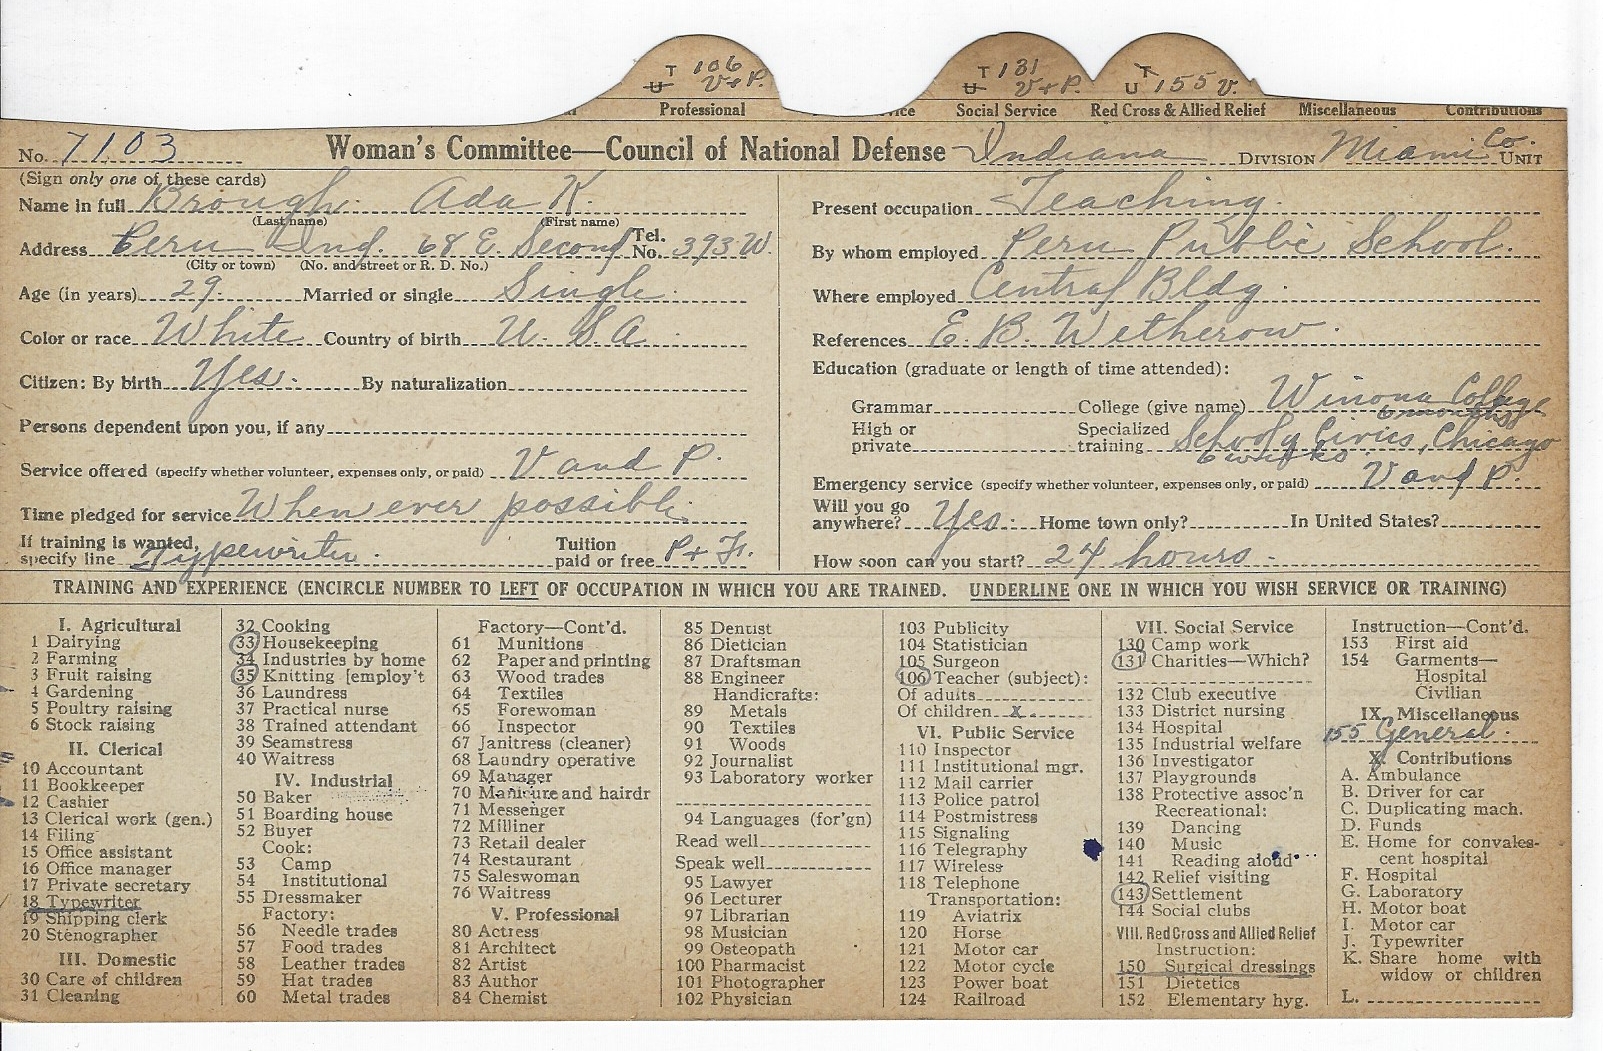 T 106
U V + P.
T 131
U V + P.
T
U 155 V.
Professional Social Service Red Cross & Allied Relief Miscellaneous Contributions
No. 7103 Woman's Committee—Council of National Defense Indiana DIVISION Miami Co. UNIT
(Sign only one of these cards)
Name in full Brough Ada K.
(Last name) (First name)
Address Peru Ind. 68 E. Second Tel. No. 393 W.
(City or town) (No. and street or R. D. No.)
Age (in years) 29. Married or single Single.
Color or race White Country of birth U. S. A.
Citizen: By birth Yes. By naturalization
Persons dependent upon you, if any
Service offered (specify whether volunteer, expenses only, or paid) V and P.
Time pledged for service When ever possible.
If training is wanted, specify line Typewriter. Tuition paid or free P + F.
Present occupation Teaching.
By whom employed Peru Public School.
Where employed Central Bldg.
References E. B. Wetherow.
Education (graduate or length of time attended):
Grammar College (give name) Winona College
6 months
High or private Specialized training School of Civics, Chicago
6 weeks
Emergency service (specify whether volunteer, expenses only, or paid) V and P.
Will you go anywhere? Yes. Home town only? In United States?
How soon can you start? 24 hours.
TRAINING AND EXPERIENCE (ENCIRCLE NUMBER TO LEFT OF OCCUPATION IN WHICH YOU ARE TRAINED. UNDERLINE ONE IN WHICH YOU WISH SERVICE OR TRAINING)
I. Agricultural
1 Dairying
2 Farming
3 Fruit raising
4 Gardening
5 Poultry raising
6 Stock raising
II. Clerical
10 Accountant
11 Bookkeeper
12 Cashier
13 Clerical work (gen.)
14 Filing
15 Office assistant
16 Office manager
17 Private secretary
18 Typewriter
19 Shipping clerk
20 Stenographer
III. Domestic
30 Care of children
31 Cleaning
32 Cooking
33 Housekeeping
34 Industries by home
35 Knitting [employ't
36 Laundress
37 Practical nurse
38 Trained attendant
39 Seamstress
40 Waitress
IV. Industrial
50 Baker
51 Boarding house
52 Buyer
Cook:
53 Camp
54 Institutional
55 Dressmaker
Factory:
56 Needle trades
57 Food trades
58 Leather trades
59 Hat trades
60 Metal trades
Factory—Cont'd.
61 Munitions
62 Paper and printing
63 Wood trades
64 Textiles
65 Forewoman
66 Inspector
67 Janitress (cleaner)
68 Laundry operative
69 Manager
70 Manicure and hairdr
71 Messenger
72 Milliner
73 Retail dealer
74 Restaurant
75 Saleswoman
76 Waitress
V. Professional
80 Actress
81 Architect
82 Artist
83 Author
84 Chemist
85 Dentist
86 Dietician
87 Draftsman
88 Engineer
Handicrafts:
89 Metals
90 Textiles
91 Woods
92 Journalist
93 Laboratory worker
94 Languages (for'gn)
Read well
Speak well
95 Lawyer
96 Lecturer
97 Librarian
98 Musician
99 Osteopath
100 Pharmacist
101 Photographer
102 Physician
103 Publicity
104 Statistician
105 Surgeon
106 Teacher (subject):
Of adults
Of children x
VI. Public Service
110 Inspector
111 Institutional mgr.
112 Mail carrier
113 Police patrol
114 Postmistress
115 Signaling
116 Telegraphy
117 Wireless
118 Telephone
Transportation:
119 Aviatrix
120 Horse
121 Motor car
122 Motor cycle
123 Power boat
124 Railroad
VII. Social Service
130 Camp work
131 Charities—Which?
132 Club executive
133 District nursing
134 Hospital
135 Industrial welfare
136 Investigator
137 Playgrounds
138 Protective assoc'n
Recreational:
139 Dancing
140 Music
141 Reading aloud
142 Relief visiting
143 Settlement
144 Social clubs
VIII. Red Cross and Allied Relief
Instruction:
150 Surgical dressings
151 Dietetics
152 Elementary hyg.
Instruction—Cont'd.
153 First aid
154 Garments—
Hospital
Civilian
IX. Miscellaneous
155 General.
X. Contributions
A. Ambulance
B. Driver for car
C. Duplicating mach.
D. Funds
E. Home for convales-
cent hospital
F. Hospital
G. Laboratory
H. Motor boat
I. Motor car
J. Typewriter
K. Share home with
widow or children
L.